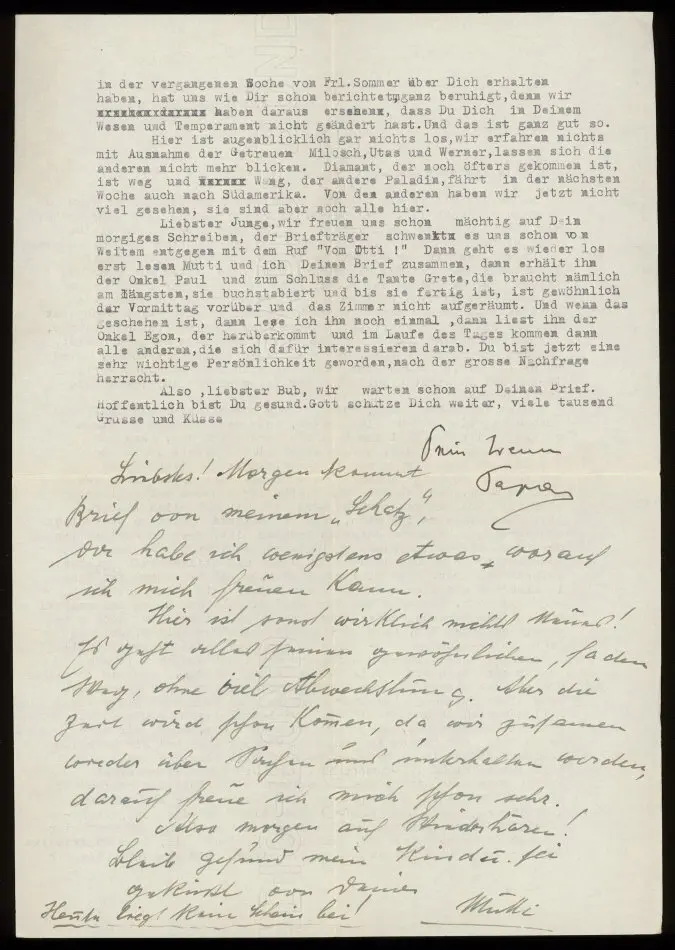 in der vergangenen Woche von Frl.Sommer über Dich erhalten
haben, hat uns wie Dir schon berichtet,ganz beruhigt,denn wir
haben daraus ersehenx, dass Du Dich in Deinem
Wesen und Temperament nicht geändert hast.Und das ist ganz gut so.
Hier ist augenblicklich gar nichts los,wir erfahren nichts
mit Ausnahme der Getreuen Milosch,Utas und Werner,lassen sich die
anderen nicht mehr blicken. Diamant, der noch öfters gekommen ist,
ist weg und Wang, der andere Paladin,fährt in der nächsten
Woche auch nach Südamerika. Von den anderen haben wir jetzt nicht
viel gesehen, sie sind aber noch alle hier.
Liebster Junge,wir freuen uns schon mächtig auf Dein
morgiges Schreiben, der Briefträger schwenktx es uns schon von
Weitem entgegen mit dem Ruf "Vom Otti !" Dann geht es wieder los
erst lesen Mutti und ich Deinen Brief zusammen, dann erhält ihn
der Onkel Paul und zum Schluss die Tante Grete,die braucht nämlich
am längsten,sie buchstabiert und bis sie fertig ist, ist gewöhnlich
der Vormittag vorüber und das Zimmer nicht aufgeräumt. Und wenn das
geschehen ist, dann lese ich ihn noch einmal ,dann liest ihn der
Onkel Egon, der herüberkommt und im Laufe des Tages kommen dann
alle anderen,die sich dafür interessieren darab. Du bist jetzt eine
sehr wichtige Persönlichkeit geworden,nach der grosse Nachfrage
herrscht.
Also ,liebster Bub, wir warten schon auf Deinen Brief.
Hoffentlich bist Du gesund.Gott schütze Dich weiter, viele tausend
Grüsse und Küsse
Papa
Liebstes! Morgen kommt
Brief von meinem „Schatz",
da habe ich wenigstens etwas, worauf
ich mich freuen kann.
Hier ist sonst wirklich nichts Neues!
Es geht alles seinen gewöhnlichen, faden
Weg, ohne viel Abwechslung. Aber die
Zeit wird schon kommen, da wir zusammen
wieder über Sachen uns unterhalten werden,
darauf freue ich mich schon sehr.
Also morgen auf Wiederhören!
Bleib gesund mein Kind u. sei
geküsst von Deiner
Mutti
Heute liegt kein Schein bei!